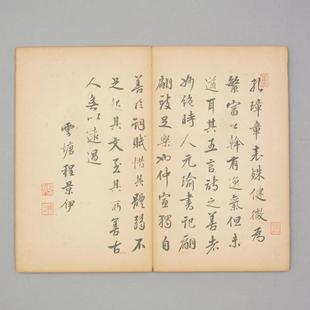 孔璋章表殊健微為
繁富公幹有逸氣但未
遒耳其五言詩之善者
妙絕時人元瑜書記翩
翩致足樂也仲宣獨自
善於詞賦惜其體弱不
足起其文至其所善古
人無以遠過
雲塘程景伊